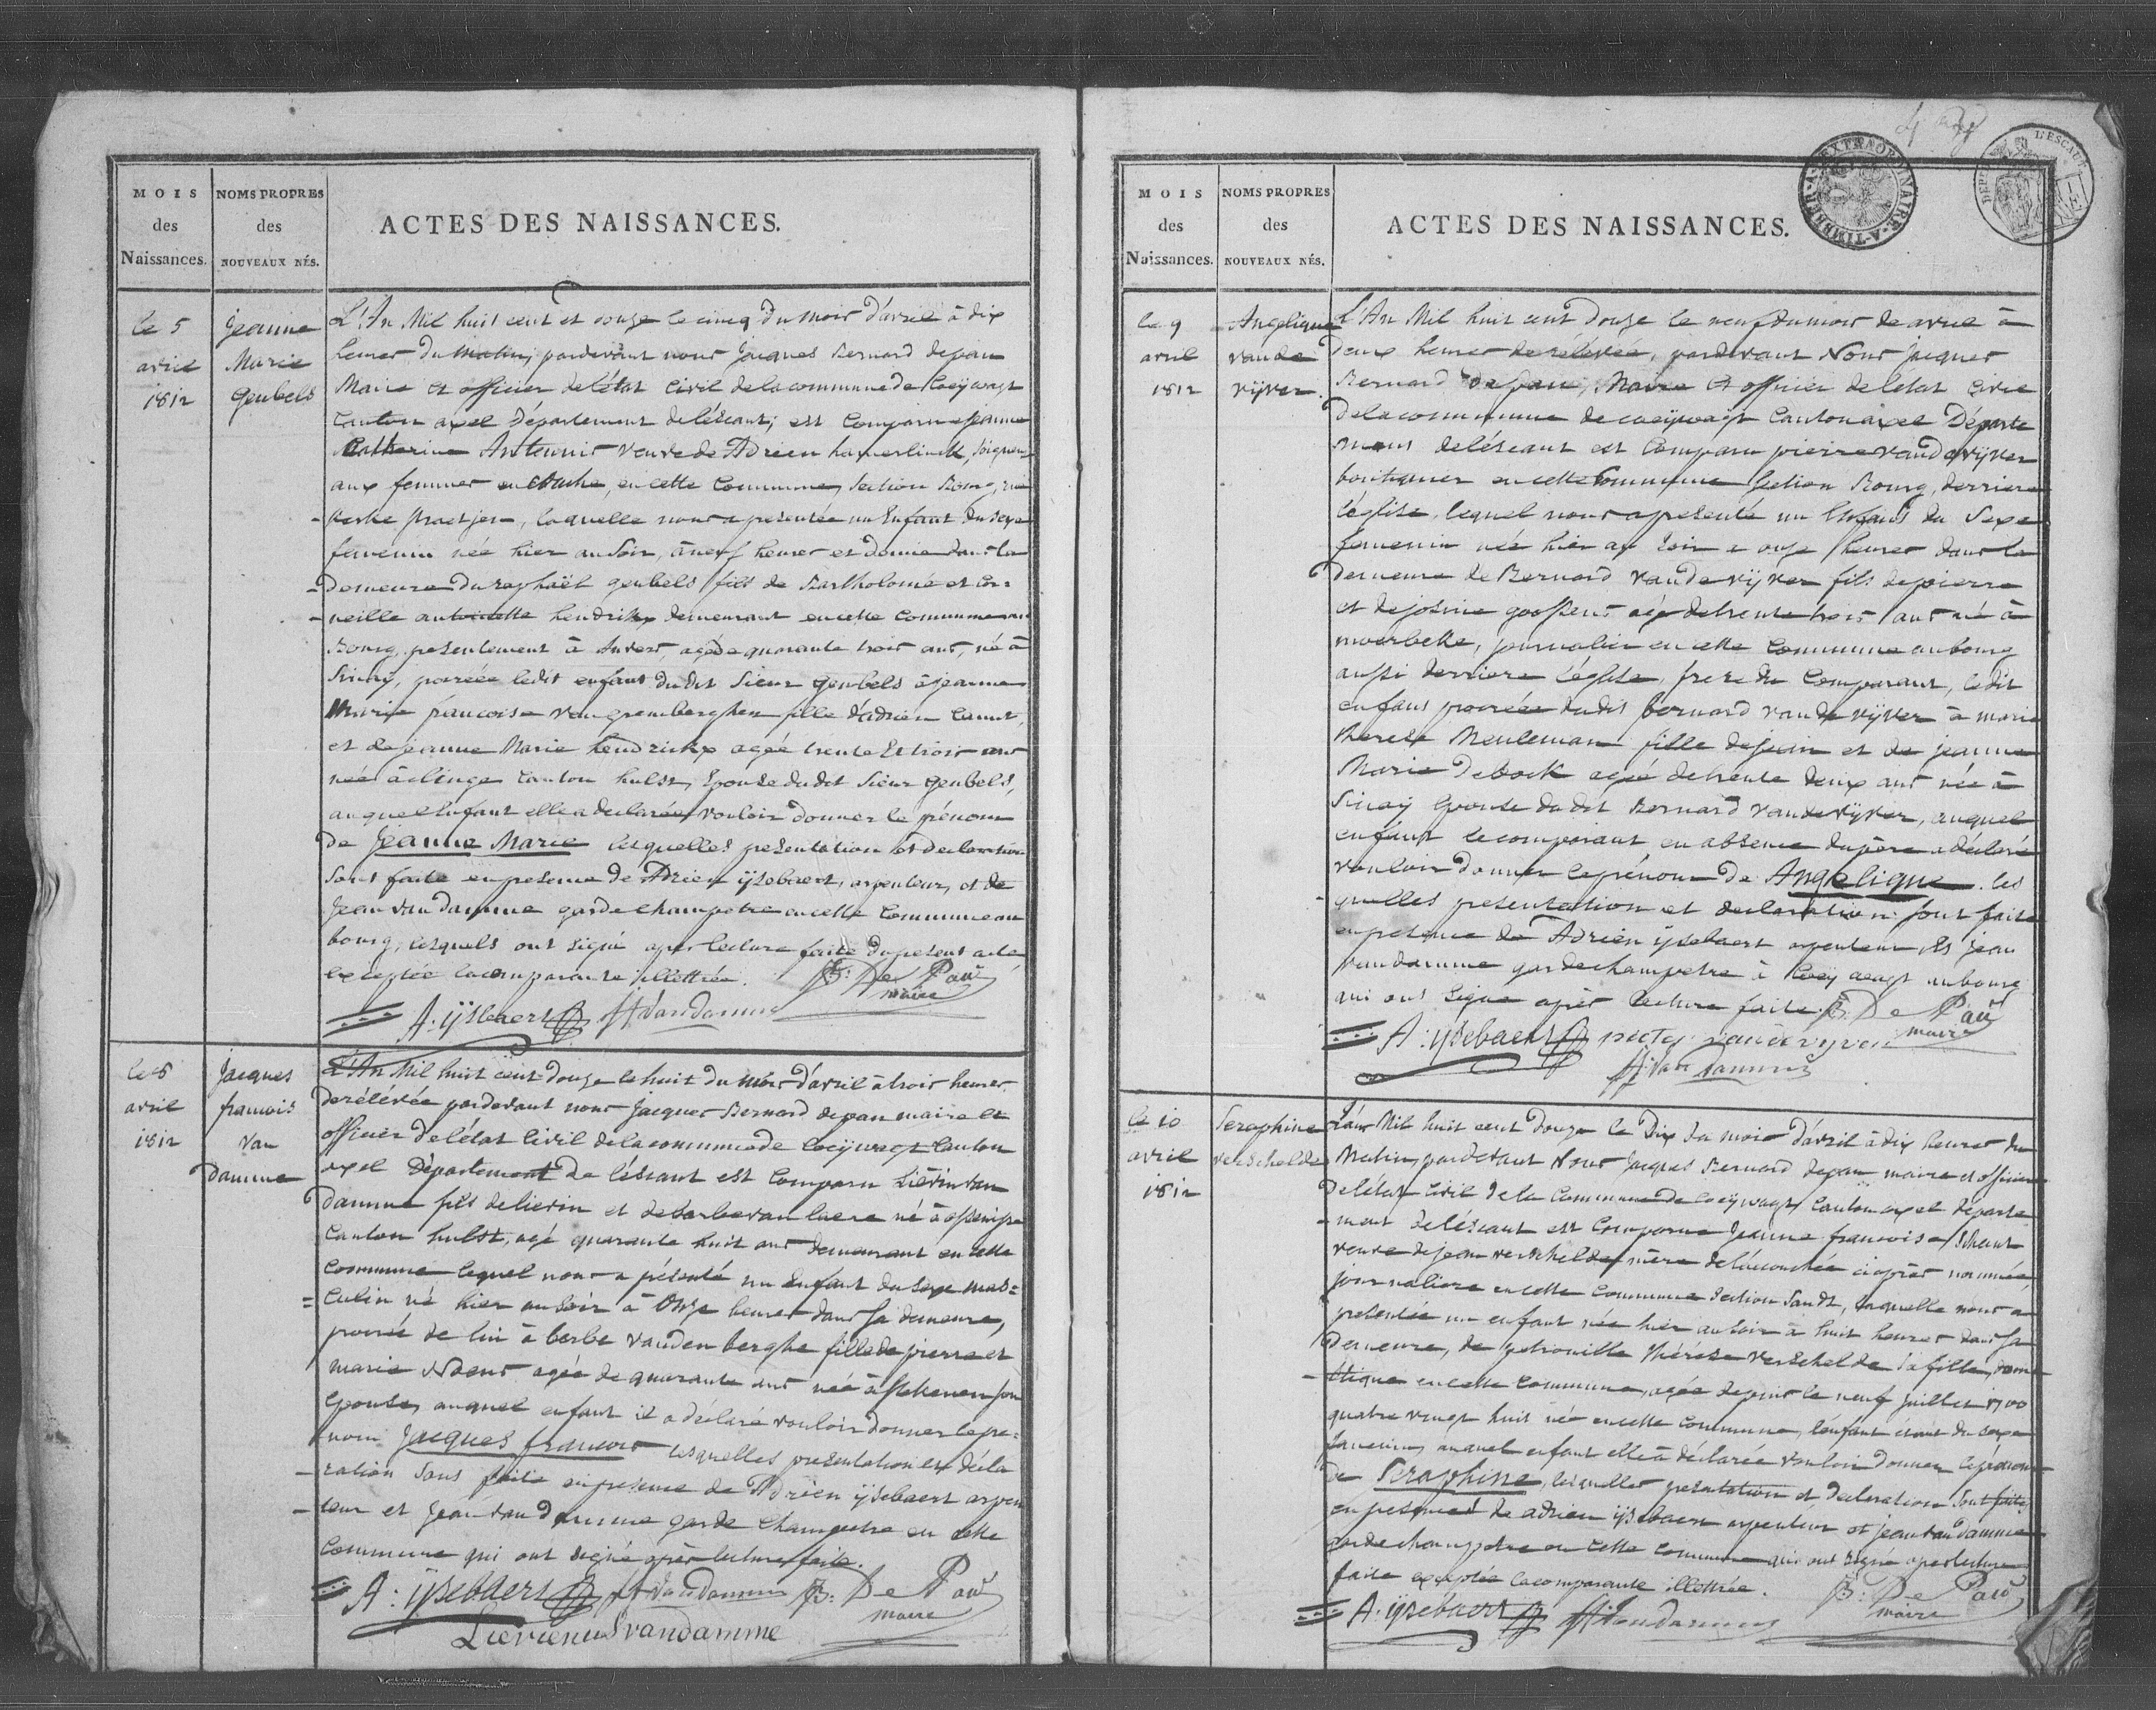 MOIS
des
Naissances.
NOMS PROPRES
des
NOUVEAUX NÉS.
ACTES DES NAISSANCES.
le 5
avril
1812
Jeanne
Marie
Geubels
L'An Mil huit cent et douze le cinq du mois d'avril à dix
heures du matin, pardevant nous Jacques Bernard depau
Maire et officier de l'état civil de la commune de Coeÿwagt
Canton axel Département de l'éscaut, est comparue jeanne
Catherine Anteunis veuve de Adrien hamerlinck, soigneuse
aux femmes en couche, en cette Commune, Section Bourg, rue
laquelle nous a presentée un Enfant du sexe
femenin née hier au soir, à neuf heures et demie dans la
demeure du raphaël geubels fils de Bartholomé et Cor-
neille antoinette hendrikx demeurant en cette commune au
Bourg, presentement à Anvers, agé de quarante trois ans, né à
Sinaÿ, procréée ledit enfant du dit Sieur geubels à jeanne
Marie francoise van gremberghen fille d'adrien Canut,
et de jeanne Marie hendrickx agée trente et trois ans
née à clinge canton hulst, Epouse du dit Sieur Geubels,
auquel enfant elle a declarée vouloir donner le prénom
de Jeanne Marie lesquelles presentation et declaration
sont faite en presence de Adrien ÿsebaert, arpenteur, et de
Jean van damme garde champetre en cette Commune au
bourg, lesquels ont signé apres lecture faite du present acte
exceptée la comparante illettrée.
B: De Pauw
maire
A: ÿsebaert
J: Van Damme
le 8
avril
1812
Jacques
francois
Van
Damme
L'An Mil huit cent douze le huit du mois d'avril à trois heures
de rélévée pardevant nous Jacques Bernard depau maire et
officier de l'état Civil de la commune de Coeÿwagt Canton
axel Département de l'éscaut est comparu Liévin van
damme fils de lievin et de barbe van laere né à ossenisse
canton hulst, agé quarante huit ans demeurant en cette
Commune lequel nous a présenté un Enfant du sexe mas-
culin né hier au soir à onze heures dans sa demeure,
procréé de lui à barbe vanden berghe fille de pierre et
marie Naens agée de quarante ans née à stekenen son
Epouse, auquel enfant il a déclaré vouloir donner le pré-
nom Jacques francois lesquelles presentation et décla
ration sont faite en presence de Adrien ÿsebaert arpen
teur et Jean van damme garde Champetre en cette
Commune qui ont signé après lecture faite.
A: ÿsebaert
J: Van Damme
B: De Pauw
maire
Lievienus vandamme
EXTRAORDINAIRE
A-TIMBRER-A
L'ESCAUT
MOIS
des
Naissances.
NOMS PROPRES
des
NOUVEAUX NÉS.
ACTES DES NAISSANCES.
le 9
avril
1812
Angelique
vande
vijver.
L'An Mil huit cent Douze le neuf du mois de avril à
deux heures de rélévée, pardevant Nous Jacques
Bernard depau, Maire et officier de l'état civil
de la commune de coeÿwagt Canton axel Départe
ment de l'éscaut est Comparu pierre vande vijver
boutiquier en cette Commune Section Bourg, derriere
l'église, lequel nous a presenté un Enfant du Sexe
femenin née hier au soir a onze heures dans la
demeure de Bernard vande vijver fils de pierre
et de josine goossens agé de trente trois ans né à
moerbeke, journalier en cette Commune au bourg
aussi derriere l'église, frere du Comparant, le dit
enfant procréée du dit bernard vande vijver à marie
therese Meuleman fille de jean et de jeanne
Marie Debock agée de trente deux ans née à
Sinaÿ Epouse du dit Bernard vande vijver, auquel
enfant le comparant en absence du père a déclaré
vouloir donner le prénom de Angelique. les
quelles presentation et declaration sont faite
en presence de Adrien ÿsebaert arpenteur et Jean
vandamme garde champetre à Coeÿwagt au bourg
qui ont signé après lecture faite.
B: De Pauw
maire
A: ÿsebaert
pieter vande vyver
J: Van Damme
le 10
avril
1812
Seraphine
verschelde
L'an Mil huit cent Douze le Dix du mois d'avril à dix heures du
Matin, pardevant Nous Jacques Bernard depau maire et officier
de l'état civil de la Commune de Coeÿwagt, Canton axel départe
ment de l'éscaut est Comparue Jeanne francoise
veuve de jean verschelde mère de l'accouchée ci après nommée
journaliere en cette Commune Section Sandt, laquelle nous a
presentée un enfant née hier au soir à huit heures dans sa
demeure, de petronille thérèse verschelde sa fille, dome
stique en cette Commune, agée depuis le neuf juillet 1700
quatre vingt huit née en cette Commune, l'enfant étant du sexe
femenin, auquel enfant elle à déclarée vouloir donner le prénom
de Seraphine, lesquelles presentation et declaration sont faite
en presence de adrien ÿsebaert arpenteur et jean van damme
garde champetre en cette commune qui ont signé apres lecture
faite exceptée la comparante illettrée.
B: De Pauw
maire
A: ÿsebaert
J: Van Damme